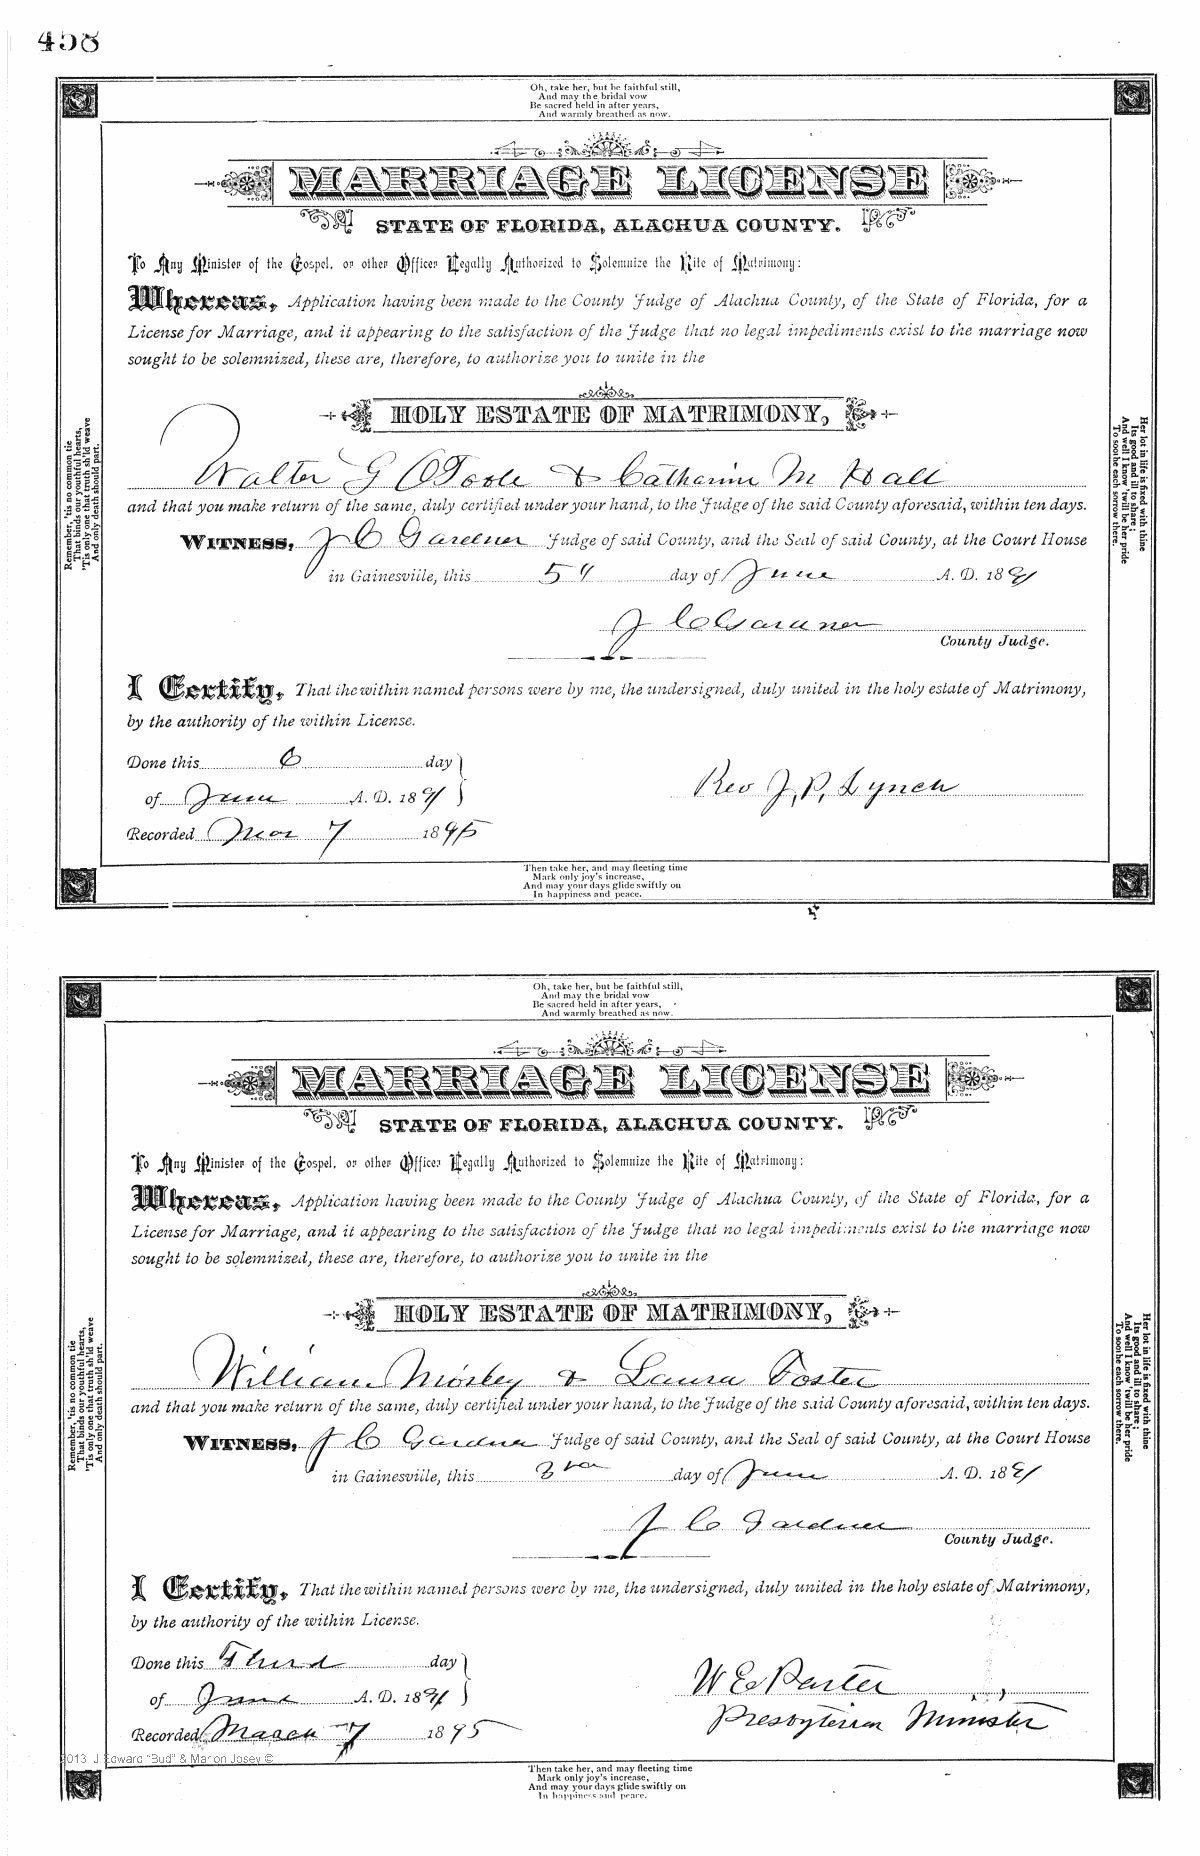 458
Oh, take her, but be faithful still,
And may the bridal vow
Be sacred held in after years,
And warmly breathed as now.
MARRIAGE LICENSE
STATE OF FLORIDA, ALACHUA COUNTY.
To Any Minister of the Gospel, or other Officer Legally Authorized to Solemnize the Rite of Matrimony:
Whereas, Application having been made to the County Judge of Alachua County, of the State of Florida, for a
License for Marriage, and it appearing to the satisfaction of the Judge that no legal impediments exist to the marriage now
sought to be solemnized, these are, therefore, to authorize you to unite in the
HOLY ESTATE OF MATRIMONY,
Walter G O'Toole & Catharine M Hall
and that you make return of the same, duly certified under your hand, to the Judge of the said County aforesaid, within ten days.
WITNESS, J C Gardner Judge of said County, and the Seal of said County, at the Court House
in Gainesville, this 5" day of June A. D. 1891
J C Gardner
County Judge.
I Certify, That the within named persons were by me, the undersigned, duly united in the holy estate of Matrimony,
by the authority of the within License.
Done this 6 day
of June A. D. 1891
Rev J. P. Lynch
Recorded Mar 7 1895
Remember, 'tis no common tie
That binds our youthful hearts,
'Tis only one that truth sh'ld weave
And only death should part.
Her lot in life is fixed with thine
Its good and ill to share;
And well I know 'twill be her pride
To soothe each sorrow there.
Then take her, and may fleeting time
Mark only joy's increase,
And may your days glide swiftly on
In happiness and peace.
Oh, take her, but be faithful still,
And may the bridal vow
Be sacred held in after years,
And warmly breathed as now.
MARRIAGE LICENSE
STATE OF FLORIDA, ALACHUA COUNTY.
To Any Minister of the Gospel, or other Officer Legally Authorized to Solemnize the Rite of Matrimony:
Whereas, Application having been made to the County Judge of Alachua County, of the State of Florida, for a
License for Marriage, and it appearing to the satisfaction of the Judge that no legal impediments exist to the marriage now
sought to be solemnized, these are, therefore, to authorize you to unite in the
HOLY ESTATE OF MATRIMONY,
William Mosley & Laura Foster
and that you make return of the same, duly certified under your hand, to the Judge of the said County aforesaid, within ten days.
WITNESS, J C Gardner Judge of said County, and the Seal of said County, at the Court House
in Gainesville, this 3rd day of June A. D. 1891
J C Gardner
County Judge.
I Certify, That the within named persons were by me, the undersigned, duly united in the holy estate of Matrimony,
by the authority of the within License.
Done this Third day
of June A. D. 1891
W E
Presbyterian Minister
Recorded March 7 1895
2013 J Edward "Bud" & Marion Josey ©
Remember, 'tis no common tie
That binds our youthful hearts,
'Tis only one that truth sh'ld weave
And only death should part.
Her lot in life is fixed with thine
Its good and ill to share;
And well I know 'twill be her pride
To soothe each sorrow there.
Then take her, and may fleeting time
Mark only joy's increase,
And may your days glide swiftly on
In happiness and peace.